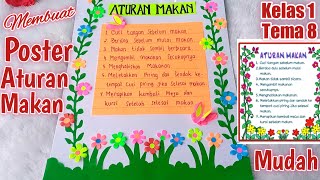 Membuat
Poster
Aturan
Makan
ATURAN MAKAN
1. Cuci tangan sebelum makan.
2. Berdoa sebelum mulai makan.
3. Makan tidak sambil berbicara.
4. Mengambil makanan secukupnya.
5. Menghabiskan makanan.
6. Meletakkan piring dan sendok ke
tempat cuci piring jika selesai makan.
7. Merapikan kembali meja dan
kursi setelah selesai makan.
Kelas 1
Tema 8
ATURAN MAKAN
1. Cuci tangan sebelum makan.
2. Berdoa sebelum mulai makan.
3. Makan tidak sambil berbicara.
4. Mengambil makanan secukupnya.
5. Menghabiskan makanan.
6. Meletakkan piring dan sendok ke
tempat cuci piring jika selesai makan.
7. Merapikan kembali meja dan kursi
setelah selesai makan.
Mudah